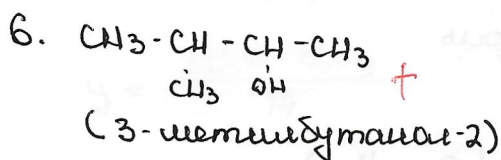 6. CH3-CH-CH-CH3
CH3 OH
+
(3-метилбутанол-2)